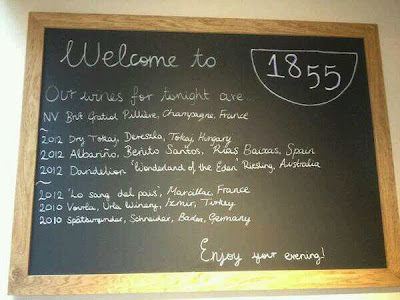 Welcome to
1855
Our wines for tonight are...
NV Brut Gratiot Pillière, Champagne, France
~
2012 Dry Tokaj, Dereszla, Tokaj, Hungary
2012 Albariño, Benito Santos, Rías Baixas, Spain
2012 Dandelion 'Wonderland of the Eden' Riesling, Australia
~
2012 'Lo sang del pais', Marcillac, France
2010 Vourla, Urla Winery, Izmir, Turkey
2010 Spätburgunder, Schneider, Baden, Germany
Enjoy your evening!